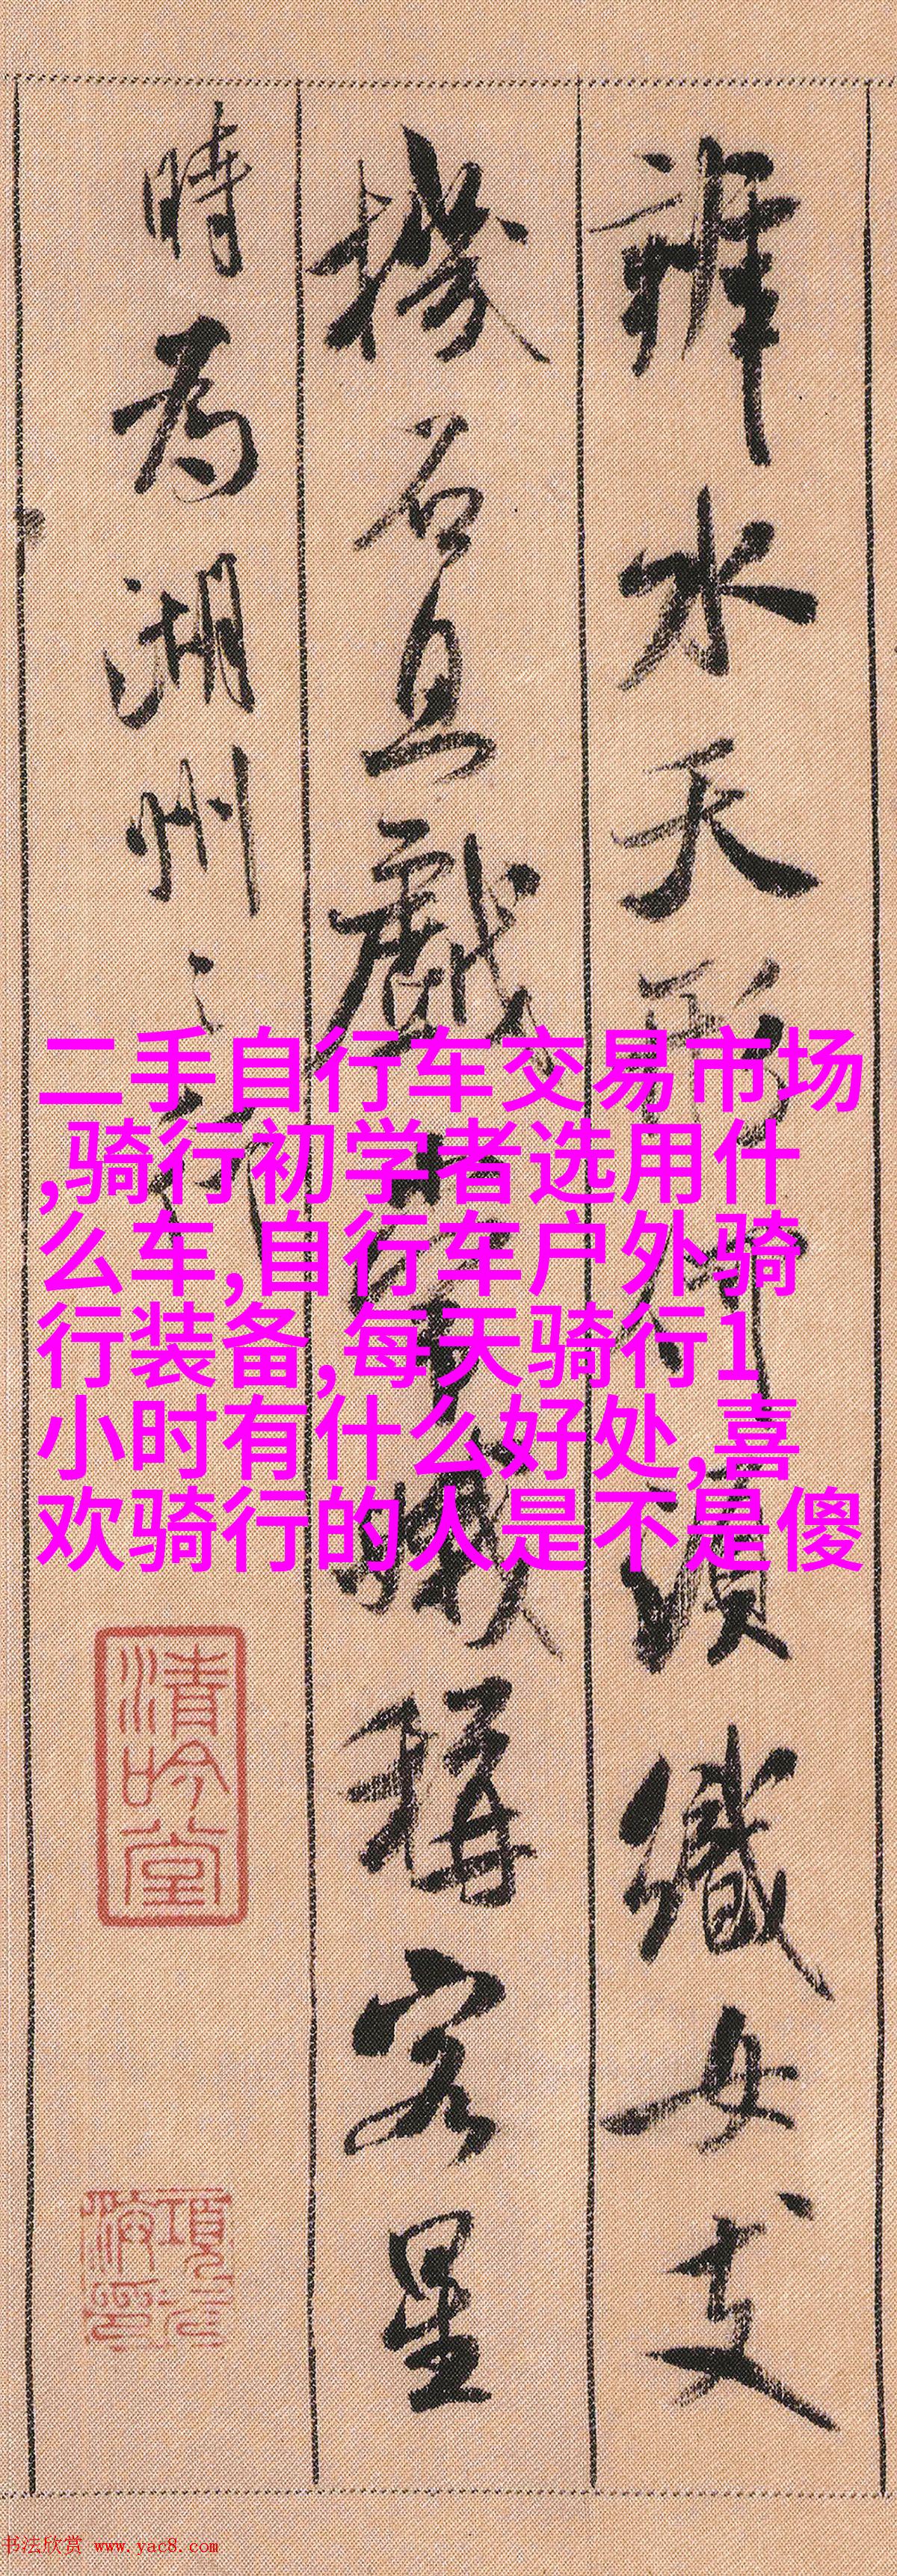 辨水天形何須織女支
機石且戲常娥稱客星
時為湖州之行
二手自行车交易市场
,骑行初学者选用什
么车,自行车户外骑
行装备,每天骑行1
小时有什么好处,喜
欢骑行的人是不是傻
清吟堂
书法欣赏 www.yac8.com